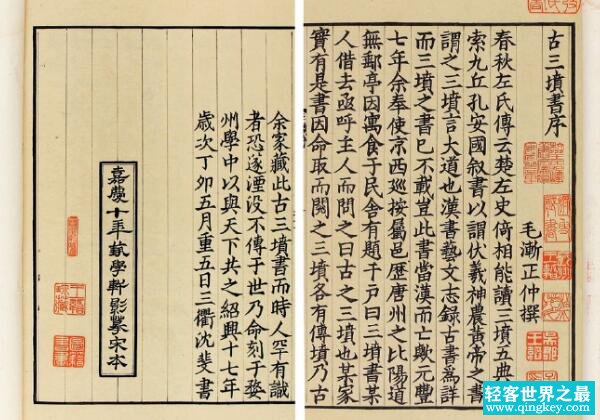 古三墳書序
毛漸正仲撰
春秋左氏傳云楚左史倚相能讀三墳五典
索九丘孔安國叙書以謂伏羲神農黃帝之書
謂之三墳言大道也漢書藝文志錄古書為詳
而三墳之書已不載豈此書當漢而亡歟元豐
七年余奉使京西廵按屬邑歷唐州之比陽道
無郵亭因寓食于民舍有題于戸曰三墳書某
人借去亟呼主人而問之曰古之三墳也某家
實有是書因命取而閱之三墳各有傳墳乃古
余家藏此古三墳書而時人罕有識
者恐遂湮没不傳于世乃命刻于婺
州學中以與天下共之紹興十七年
歳次丁卯五月重五日三衢沈斐書
嘉慶十年蓺學軒影摹宋本
轻客世界之最
www.qingkey.com